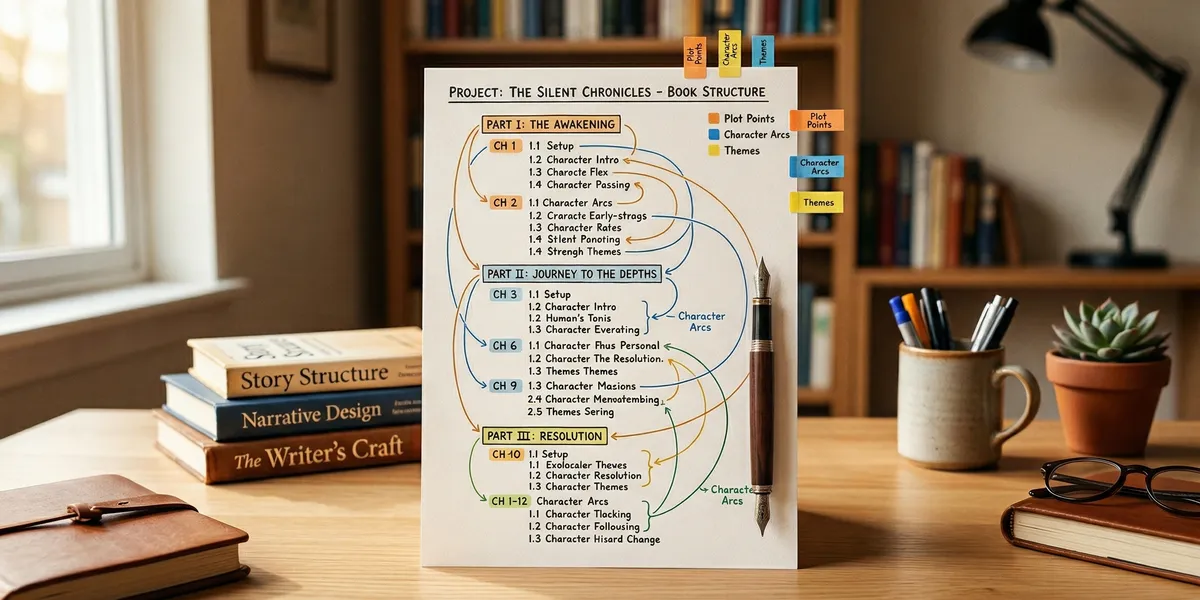 Plot Points
Character Arcs
Themes
PROJECT: THE SILENT CHRONICLES – BOOK STRUCTURE
PART I: THE AWAKENING
CH 1
1.1 Setup
1.2 Character Intro
1.3 Charocte Flex
1.4 Character Passing
CH 2
1.1 Character Arcs
1.2 Cracacte Early-strags
1.3 Character Rates
1.4 Stlent Panoting
1.4 Strengh Themes
PART II: JOURNEY TO THE DEPTHS
CH 3
1.1 Setup
1.2 Character Intro
1.2 Human's Tonis
1.3 Character Everating
Character
Arcs
CH 6
1.1 Character Phus Personal
1.2 Character The Resolution.
1.3 Themes Themes
CH 9
1.3 Character Masions
2.4 Character Menoatembing
2.5 Themes Sering
PART III: RESOLUTION
CH-10
1.1 Setup
1.1 Exolocaler Theves
1.2 Character Resolution
1.3 Character Themes
CH 1-12
Character Arcs
1.1 Character Tlocking
1.2 Character Follousing
1.3 Character Hisard Change
Characte
Arcs
Plot Points
Character Arcs
Themes
Plot
Points
Character
Arcs
Themes
Story Structure
Narrative Design
The Writer's Craft